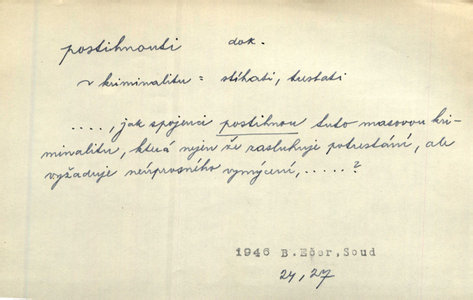 postihnouti dok.
~ kriminalitu = stíhati, trestati
....., jak spojenci postihnou tuto masovou kri-
minalitu, která nejen že zasluhuje potrestání, ale
vyžaduje neúprosného vymýcení, .....?
1946 B.Ečer, Soud
24, 27